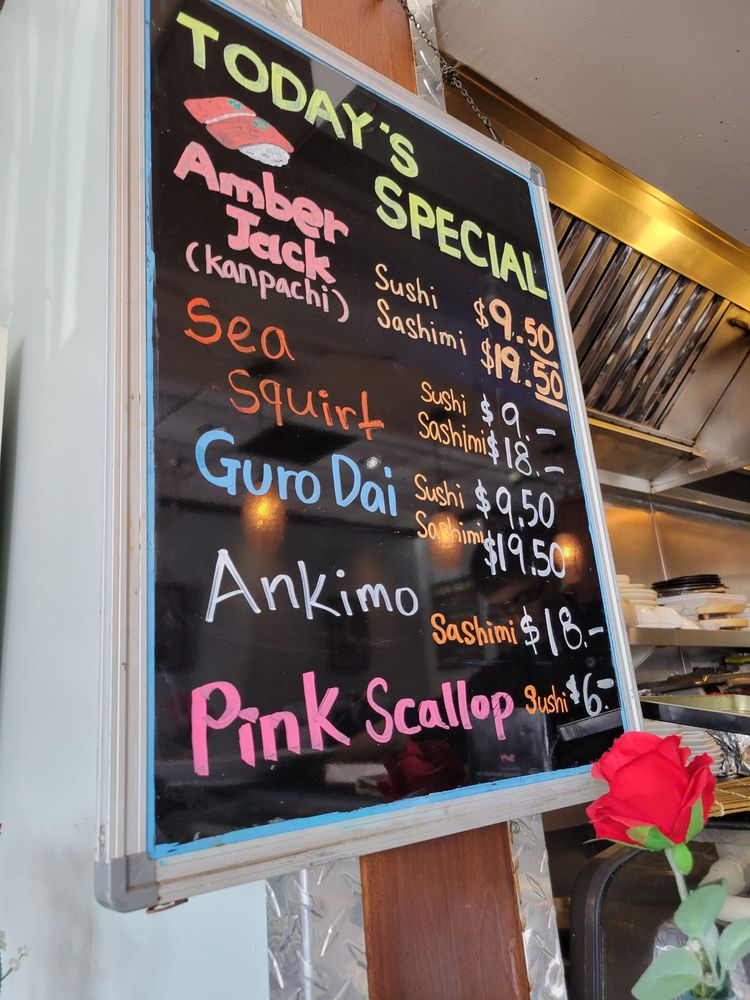 TODAY'S
SPECIAL
Amber
Jack
(kanpachi)
Sushi $9.50
Sashimi $19.50
Sea
Squirt
Sushi $9.-
Sashimi $18.-
Guro Dai
Sushi $9.50
Sashimi $19.50
Ankimo
Sashimi $18.-
Pink Scallop Sushi $6.-